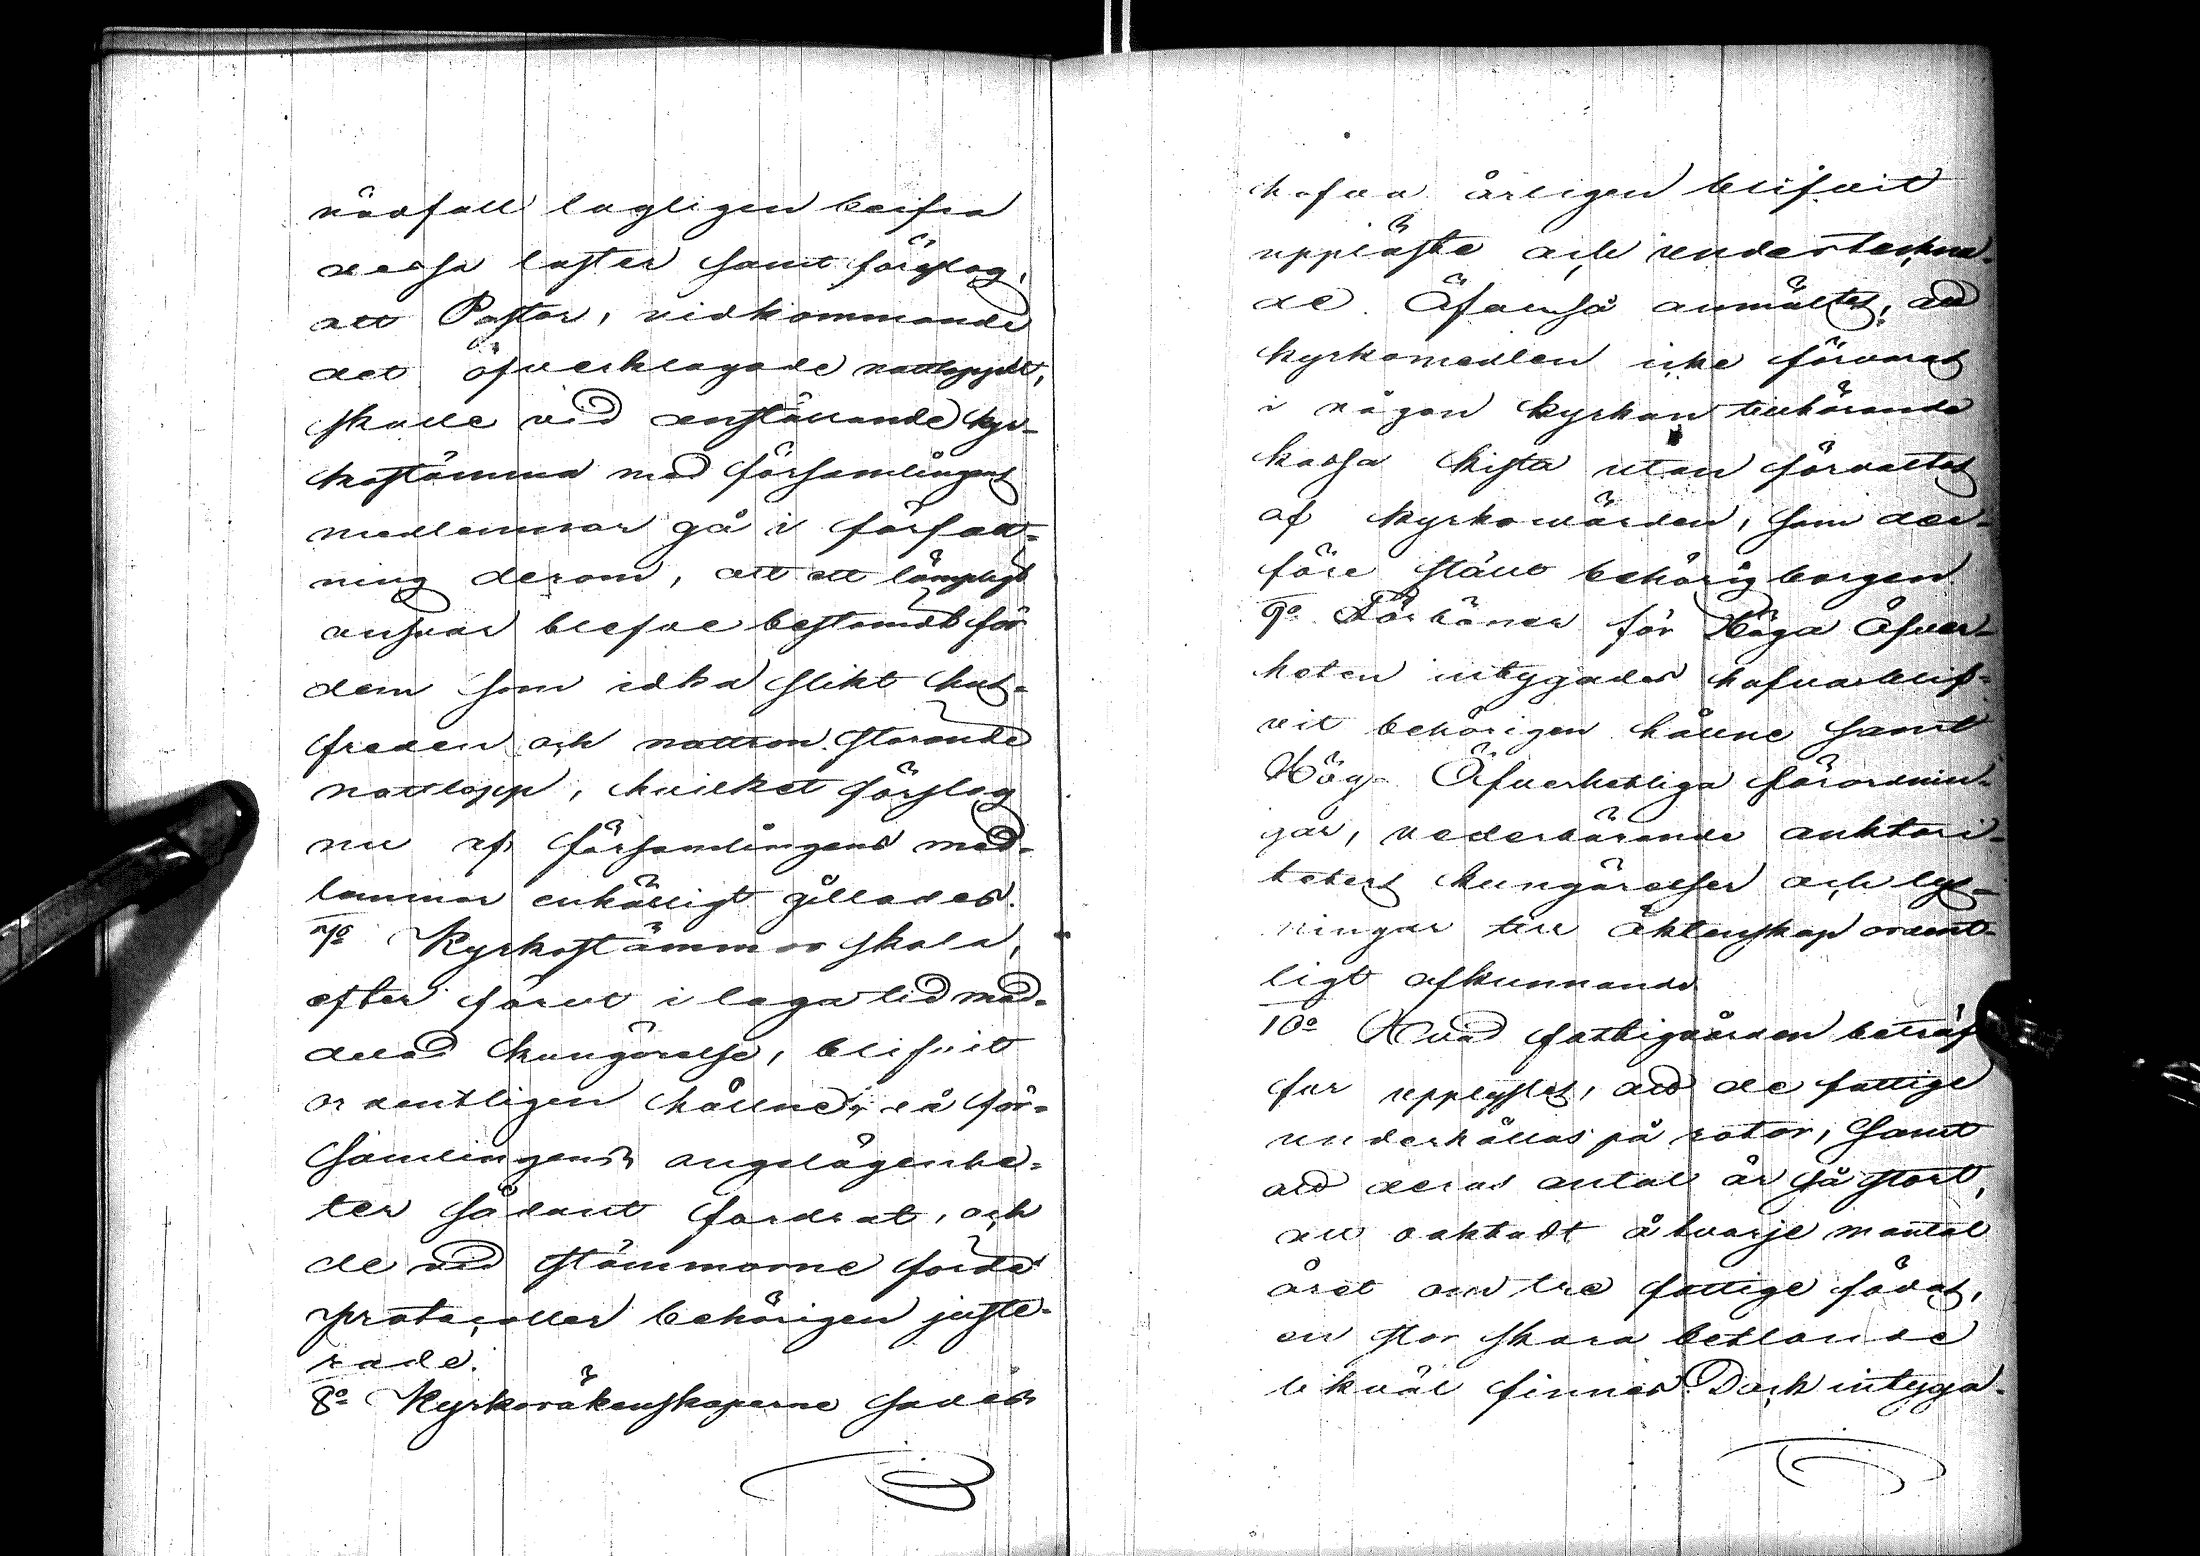 nödfall lagligen beifra
dessa laster samt förslog,
att Pastor, vidkommande
det öfverklagade nattloppet,
skulle vid anställande kyr-
kostämma med församlingens
medlemmar gå i författ-
ning derom, att ett lämpligt
ansvar blefve bestämdt för
dem som idka slikt hus-
freden och nattron störande
nattlopp, hvilket förslag
nu af församlingens med-
lemmar enhälligt gillades.
7o Kyrkostämmor skola,
efter förut i laga tid med-
delad kungörelse, blifvit
ordentligen hållne, då för-
samlingens angelägenhe-
ter sådant fordrat, och
de vid stämmorne förda
protocoller behörigen juste-
rade.
8o Kyrkoräkenskaperne sades
hafva årligen blifvit
uppläste och underteckna-
de. Äfvenså anmältes, att
kyrkomedlen icke förvarats
i någon kyrkan tillhörande
kassa kista utan förvaltats
af kyrkovärden, som der-
före ställt behörig borgen.
9o Förböner för Höga Öfver-
heten intygades hafva blif-
vit behörigen hållne samt
Hög Öfverhetliga förordnin-
gar, vederbörande auktori-
teters kungörelser och lys-
ningar till äktenskap ordent-
ligt afkunnande.
10o Hvad fattigvården beträf
far upplystes, att de fattige
underhållas på rotar, samt
att deras antal är så stort,
att oaktadt å hvarje mantal
året om tre fattige födas,
en stor skara betlande
likväl finnes. Dock intyga-